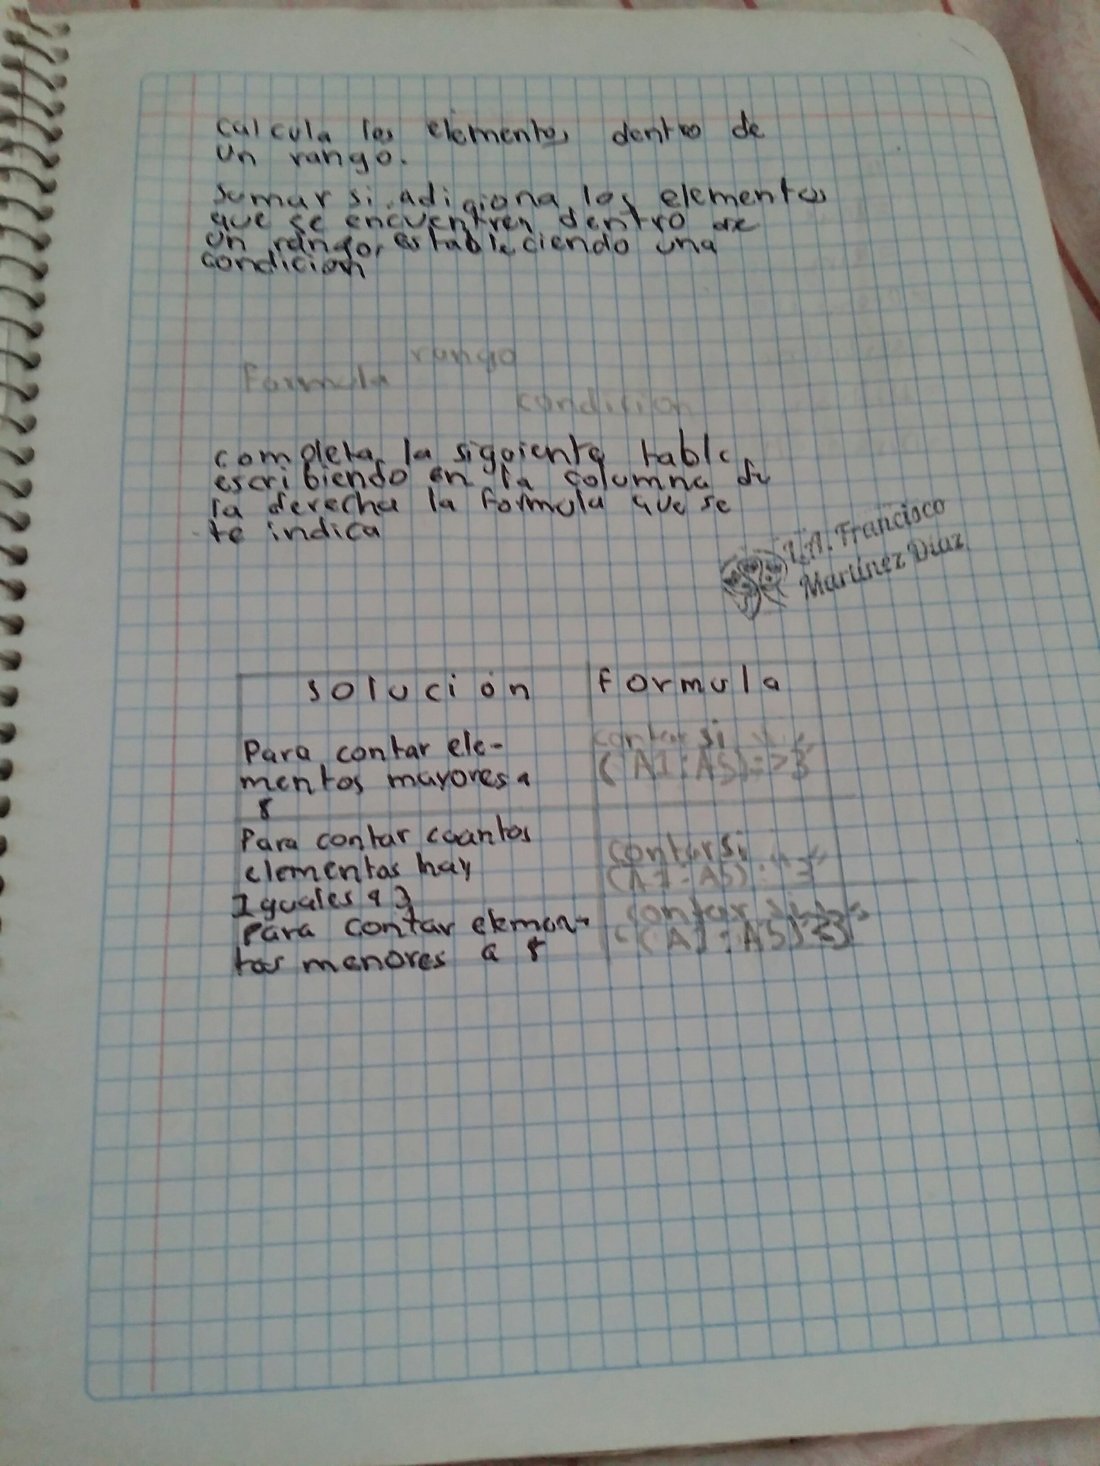 calcula los elementos dentro de
un rango.
sumar si. adiciona los elementos
que se encuentren dentro de
un rango, estableciendo una
condicion
rango
Formula
condicion
completa la siguiente tabla
escribiendo en la columna de
la derecha la formula que se
te indica
L.A. Francisco
Martínez Díaz
solución formula
Para contar ele-
mentos mayores a
8
contar si
(A1:A5)
Para contar cuantos
elementos hay
Iguales a 3
contar si
(A1:A5)
para contar elemen-
tos menores a 8
contar si
(A1:A5)